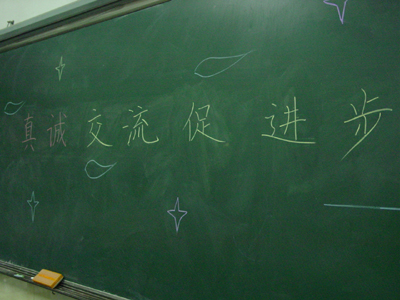 真诚交流促进步